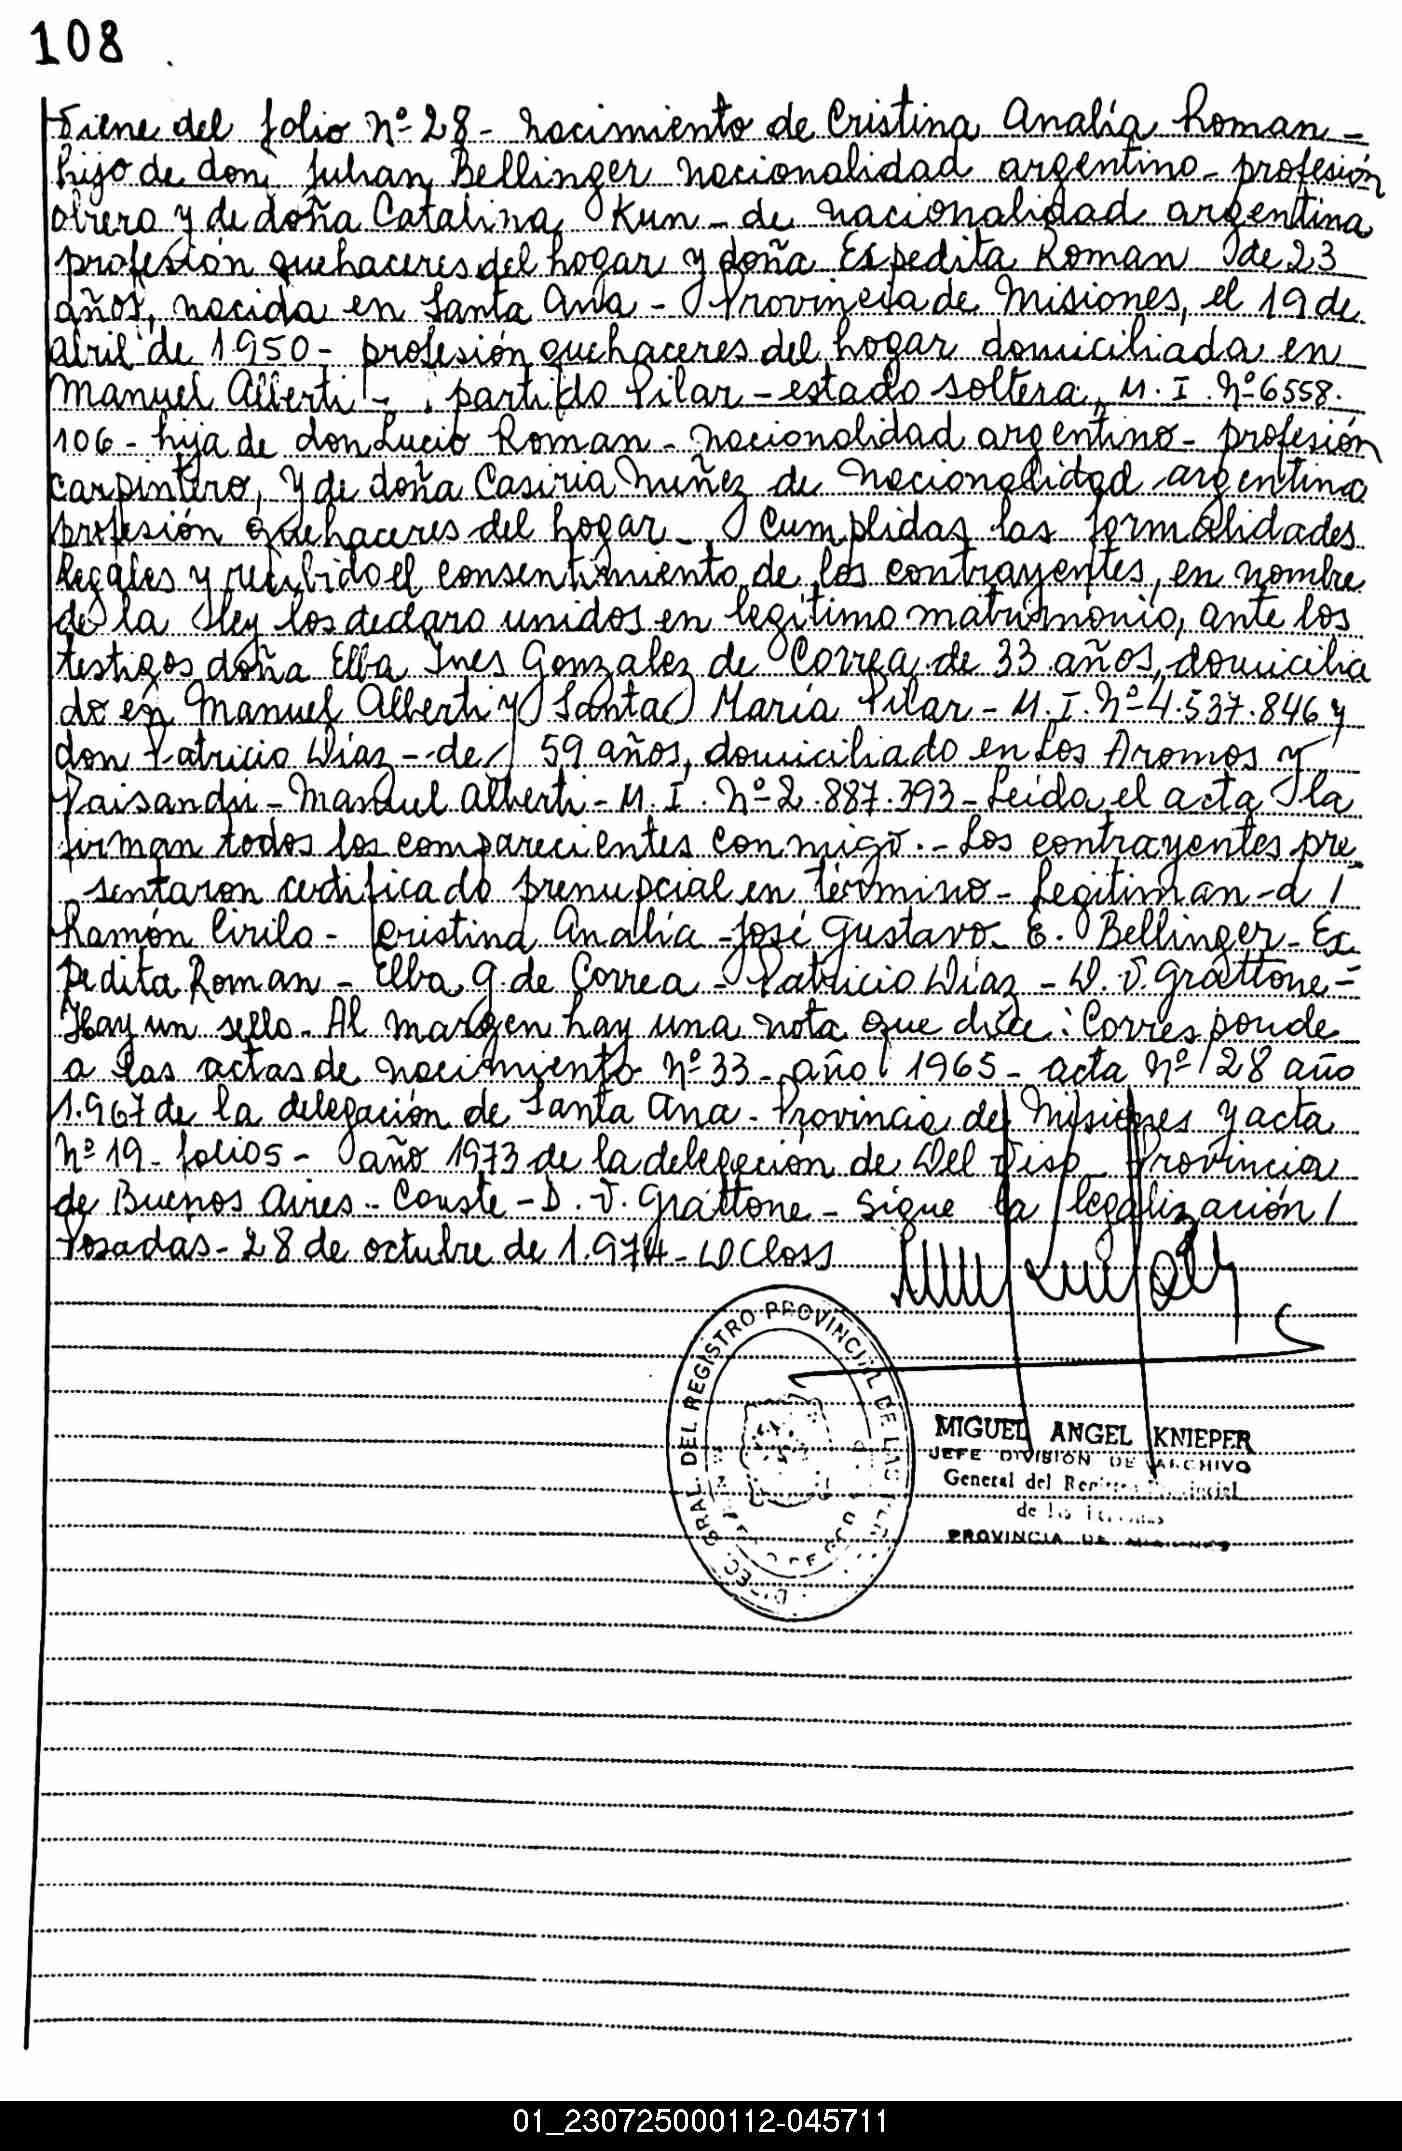 108
Viene del folio Nº 28 - Nacimiento de Cristina Analía Roman -
hijo de don Julian Bellinger nacionalidad argentino - profesión
obrero y de doña Catalina Kun - de nacionalidad argentina
profesión quehaceres del hogar y doña Expedita Roman de 23
años, nacida en Santa Ana - Provincia de Misiones, el 19 de
abril de 1950 - profesión quehaceres del hogar domiciliada en
Manuel Alberti - partido Pilar - estado soltera, M. I. Nº 6558.
106 - hija de don Lucio Roman - nacionalidad argentino - profesión
carpintero, y de doña Casiria Nuñez de nacionalidad argentina
profesión quehaceres del hogar - Cumplidas las formalidades
legales y recibido el consentimiento de los contrayentes, en nombre
de la ley los declaro unidos en legítimo matrimonio, ante los
testigos doña Elba Ines Gonzalez de Correa de 33 años, domicilia
do en Manuel Alberti y Santa María Pilar - M. I. Nº 4.537.846 y
don Patricio Díaz - de 59 años, domiciliado en Los Aromos y
Paisandú - Manuel Alberti - M. I. Nº 2.887.393 - Leída el acta la
firman todos los comparecientes conmigo. - Los contrayentes pre
sentaron certificado prenupcial en término - Legitiman - a /
Ramón Cirilo - Cristina Analía - José Gustavo - E. Bellinger - Ex
pedita Roman - Elba G. de Correa - Patricio Díaz - D. V. Grattone =
Hay un sello - Al margen hay una nota que dice: Corresponde
a las actas de nacimiento Nº 33 - año 1965 - acta Nº 128 año
1.967 de la delegación de Santa Ana - Provincia de Misiones y acta
Nº 19 - folio 5 - año 1973 de la delegación de Del Viso - Provincia
de Buenos Aires - Conste - D. V. Grattone - Sigue la legalización /
Posadas - 28 de octubre de 1.974 - D Closs
DIREC. GRAL. DEL REGISTRO PROVINCIAL DE LAS
MIGUEL ANGEL KNIEPER
JEFE DIVISION DE ARCHIVO
General del Registro Provincial
de las Personas
PROVINCIA DE MISIONES
01_230725000112-045711